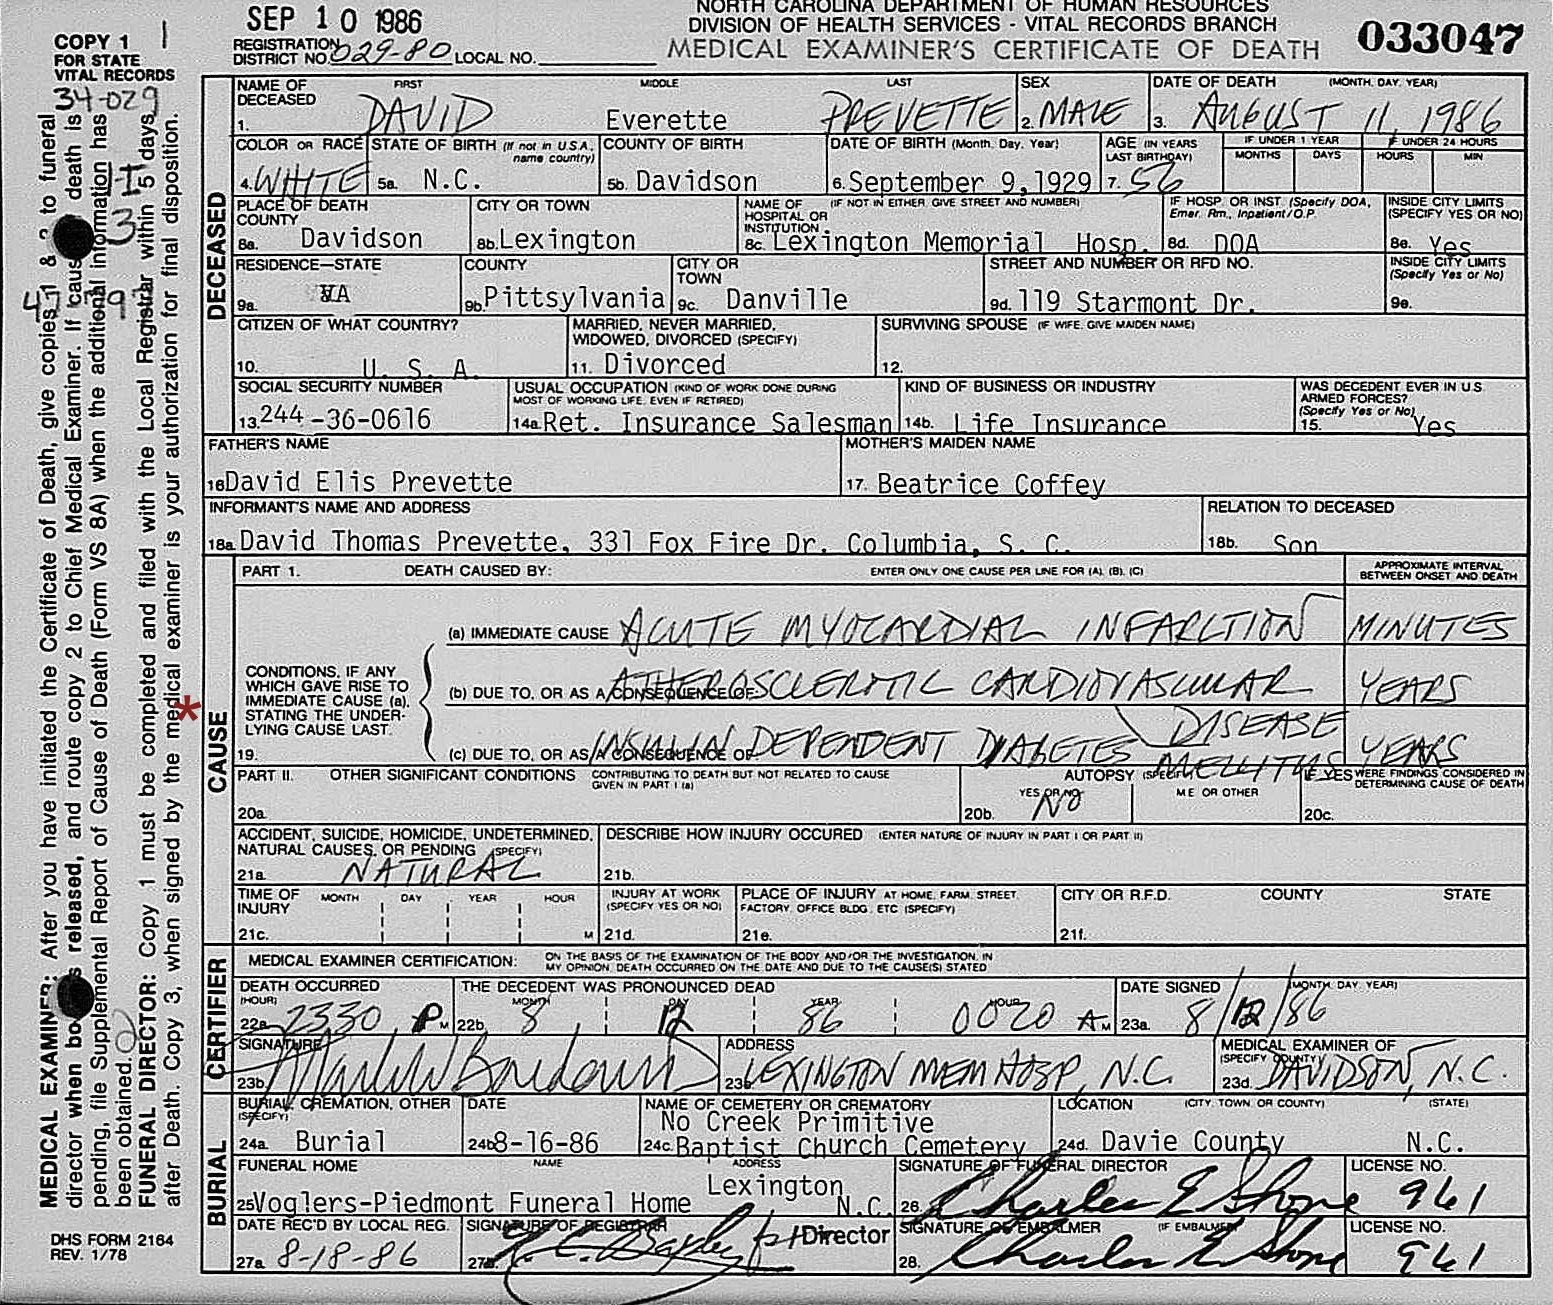 SEP 10 1986
NORTH CAROLINA DEPARTMENT OF HUMAN RESOURCES
DIVISION OF HEALTH SERVICES - VITAL RECORDS BRANCH
MEDICAL EXAMINER'S CERTIFICATE OF DEATH
033047
COPY 1 1
FOR STATE
VITAL RECORDS
REGISTRATION DISTRICT NO. 029-80 LOCAL NO.
34-029
DECEASED
NAME OF DECEASED FIRST MIDDLE LAST SEX DATE OF DEATH (MONTH, DAY, YEAR)
1. DAVID Everette PREVETTE 2. MALE 3. AUGUST 11, 1986
COLOR OR RACE STATE OF BIRTH (If not in U.S.A., name country) COUNTY OF BIRTH DATE OF BIRTH (Month, Day, Year) AGE (IN YEARS LAST BIRTHDAY) IF UNDER 1 YEAR MONTHS DAYS IF UNDER 24 HOURS HOURS MIN
4. WHITE 5a. N.C. 5b. Davidson 6. September 9, 1929 7. 56
PLACE OF DEATH COUNTY CITY OR TOWN NAME OF HOSPITAL OR INSTITUTION (IF NOT IN EITHER, GIVE STREET AND NUMBER) IF HOSP. OR INST. (Specify DOA, Emer. Rm., Inpatient/O.P. INSIDE CITY LIMITS (SPECIFY YES OR NO)
8a. Davidson 8b. Lexington 8c. Lexington Memorial Hosp. 8d. DOA 8e. Yes
RESIDENCE—STATE COUNTY CITY OR TOWN STREET AND NUMBER OR RFD NO. INSIDE CITY LIMITS (Specify Yes or No)
9a. VA 9b. Pittsylvania 9c. Danville 9d. 119 Starmont Dr. 9e.
CITIZEN OF WHAT COUNTRY? MARRIED, NEVER MARRIED, WIDOWED, DIVORCED (SPECIFY) SURVIVING SPOUSE (IF WIFE, GIVE MAIDEN NAME)
10. U. S. A. 11. Divorced 12.
SOCIAL SECURITY NUMBER USUAL OCCUPATION (KIND OF WORK DONE DURING MOST OF WORKING LIFE, EVEN IF RETIRED) KIND OF BUSINESS OR INDUSTRY WAS DECEDENT EVER IN U.S. ARMED FORCES? (Specify Yes or No)
13. 244-36-0616 14a. Ret. Insurance Salesman 14b. Life Insurance 15. Yes
FATHER'S NAME MOTHER'S MAIDEN NAME
16 David Elis Prevette 17. Beatrice Coffey
INFORMANT'S NAME AND ADDRESS RELATION TO DECEASED
18a. David Thomas Prevette, 331 Fox Fire Dr. Columbia, S. C. 18b. Son
CAUSE
PART 1. DEATH CAUSED BY: ENTER ONLY ONE CAUSE PER LINE FOR (A), (B), (C) APPROXIMATE INTERVAL BETWEEN ONSET AND DEATH
(a) IMMEDIATE CAUSE ACUTE MYOCARDIAL INFARCTION MINUTES
CONDITIONS, IF ANY WHICH GAVE RISE TO IMMEDIATE CAUSE (a), STATING THE UNDER-LYING CAUSE LAST.
(b) DUE TO, OR AS A CONSEQUENCE OF: ATHEROSCLEROTIC CARDIOVASCULAR DISEASE YEARS
19. (c) DUE TO, OR AS A CONSEQUENCE OF: INSULIN DEPENDENT DIABETES MELLITUS YEARS
PART II. OTHER SIGNIFICANT CONDITIONS CONTRIBUTING TO DEATH BUT NOT RELATED TO CAUSE GIVEN IN PART I (a) AUTOPSY (SPECIFY) YES OR NO ME OR OTHER IF YES WERE FINDINGS CONSIDERED IN DETERMINING CAUSE OF DEATH
20a. 20b. NO 20c.
ACCIDENT, SUICIDE, HOMICIDE, UNDETERMINED, NATURAL CAUSES, OR PENDING (SPECIFY) DESCRIBE HOW INJURY OCCURED (ENTER NATURE OF INJURY IN PART I OR PART II)
21a. NATURAL 21b.
TIME OF INJURY MONTH DAY YEAR HOUR INJURY AT WORK (SPECIFY YES OR NO) PLACE OF INJURY AT HOME, FARM, STREET, FACTORY, OFFICE BLDG, ETC (SPECIFY) CITY OR R.F.D. COUNTY STATE
21c. M 21d. 21e. 21f.
CERTIFIER
MEDICAL EXAMINER CERTIFICATION: ON THE BASIS OF THE EXAMINATION OF THE BODY AND/OR THE INVESTIGATION, IN MY OPINION, DEATH OCCURRED ON THE DATE AND DUE TO THE CAUSE(S) STATED
DEATH OCCURRED (HOUR) THE DECEDENT WAS PRONOUNCED DEAD MONTH DAY YEAR HOUR DATE SIGNED (MONTH DAY YEAR)
22a. 2330 P M 22b. 8 12 86 0020 A M 23a. 8/12/86
SIGNATURE ADDRESS MEDICAL EXAMINER OF (SPECIFY COUNTY)
23b. 23c. LEXINGTON MEM HOSP, N.C. 23d. DAVIDSON, N.C.
BURIAL
BURIAL, CREMATION, OTHER (SPECIFY) DATE NAME OF CEMETERY OR CREMATORY LOCATION (CITY, TOWN, OR COUNTY) (STATE)
24a. Burial 24b 8-16-86 24c. No Creek Primitive Baptist Church Cemetery 24d. Davie County N.C.
FUNERAL HOME NAME ADDRESS SIGNATURE OF FUNERAL DIRECTOR LICENSE NO.
25 Voglers-Piedmont Funeral Home Lexington N.C. 26. Charles E Shone 961
DATE REC'D BY LOCAL REG. SIGNATURE OF REGISTRAR Director SIGNATURE OF EMBALMER (IF EMBALMED) LICENSE NO.
27a. 8-18-86 27b. 28. Charles E Shone 961
MEDICAL EXAMINER: After you have initiated the Certificate of Death, give copies 1 & 3 to funeral
director when body is released, and route copy 2 to Chief Medical Examiner. If cause of death is
pending, file Supplemental Report of Cause of Death (Form VS 8A) when the additional information has
been obtained.
FUNERAL DIRECTOR: Copy 1 must be completed and filed with the Local Registrar within 5 days
after Death. Copy 3, when signed by the medical examiner is your authorization for final disposition.
DHS FORM 2164
REV. 1/78